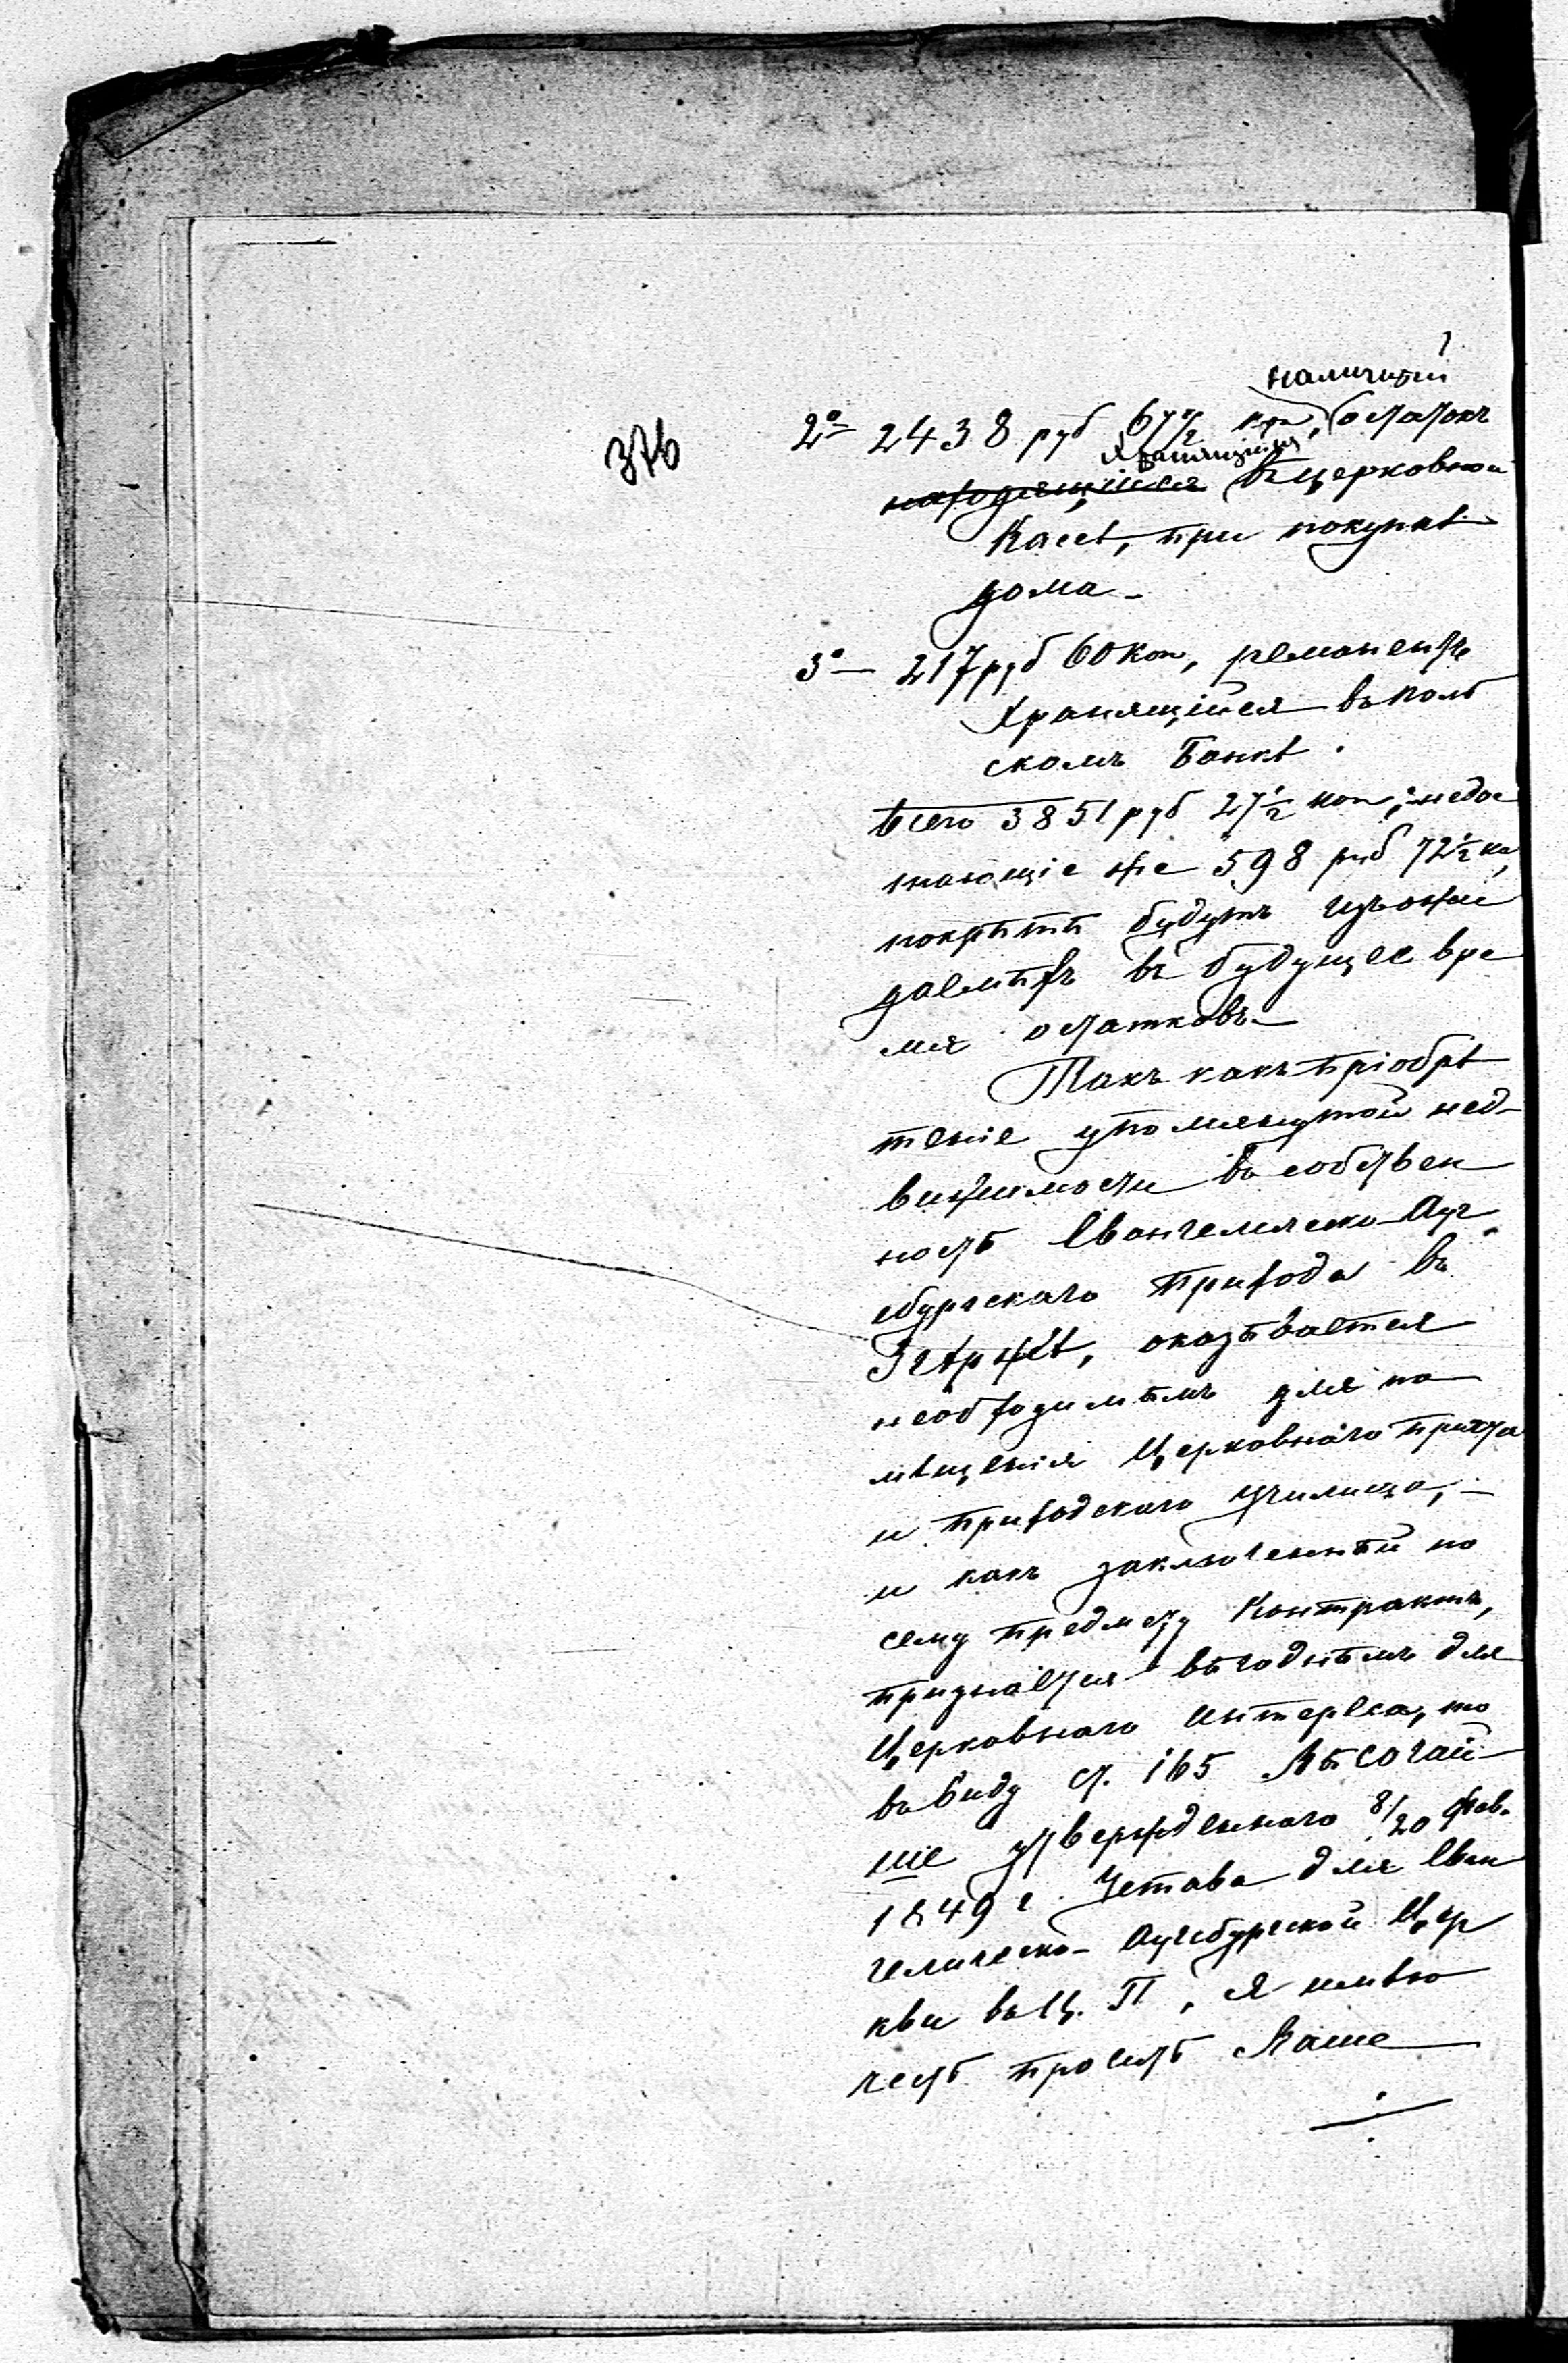 наличный
376
2º 2438 руб 67½ коп, остатокъ
хранящійся
находящійся въ церковной
Кассѣ, при покупкѣ
дома –
3º – 217 руб 60 коп, ремонентъ
хранящійся въ Поль
скомъ Банкѣ.
Всего 3851 руб 27½ коп; недос
тающіе же 598 руб 72½ ко,
покрыты будутъ изъ ожи
даемыхъ въ будущее вре
мя остатковъ. –
Такъ какъ пріобрѣ
теніе упомянутой нед-
вижимости въ собствен
ность Евангелическо-Ауг
сбургскаго прихода въ
Згѣржѣ, оказывается
необходимымъ для по
мѣщенія Церковнаго причта
и приходскаго училища, –
и какъ заключенный по
сему предмету Контрактъ,
признается выгоднымъ для
Церковнаго интереса, то
въ виду ст. 165 Высочай
ше утвержденнаго 8/20 Фев.
1849 г. Устава для Еван
гелическо-Аугсбургской Цер
кви въ Ц. П, я имѣю
честь просить Ваше